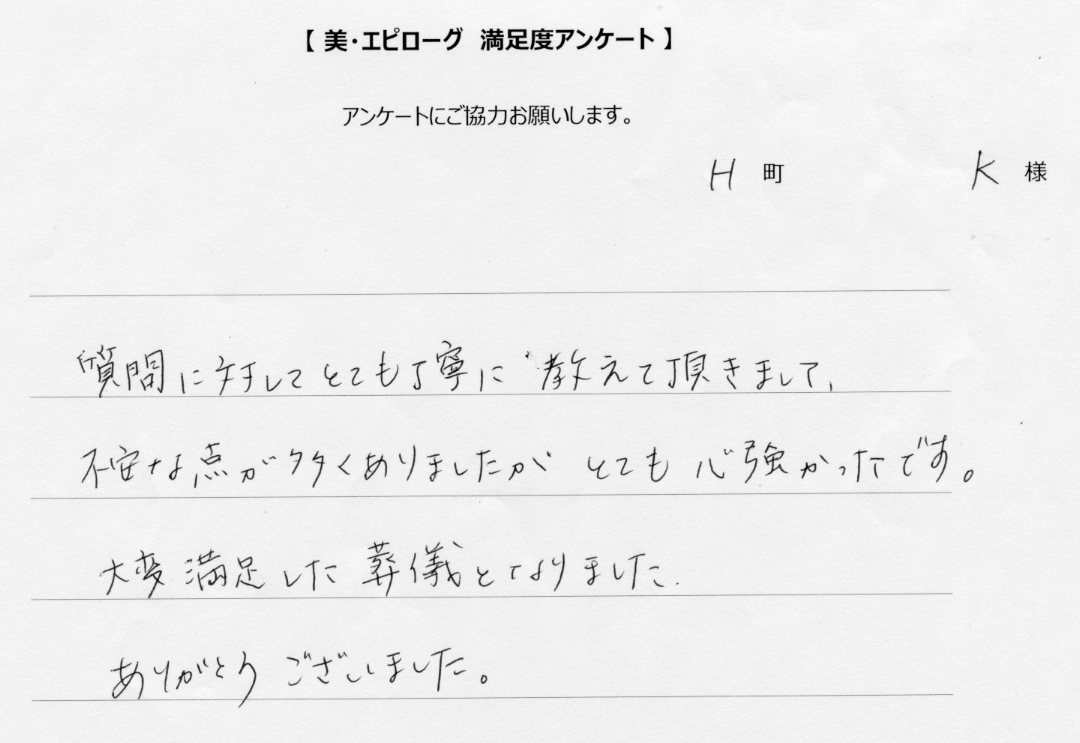 【 美・エピローグ 満足度アンケート 】
アンケートにご協力お願いします。
H 町 K 様
質問に対してとても丁寧に教えて頂きまして、
不安な点が多くありましたが とても 心強かったです。
大変満足した葬儀となりました.
ありがとうございました。